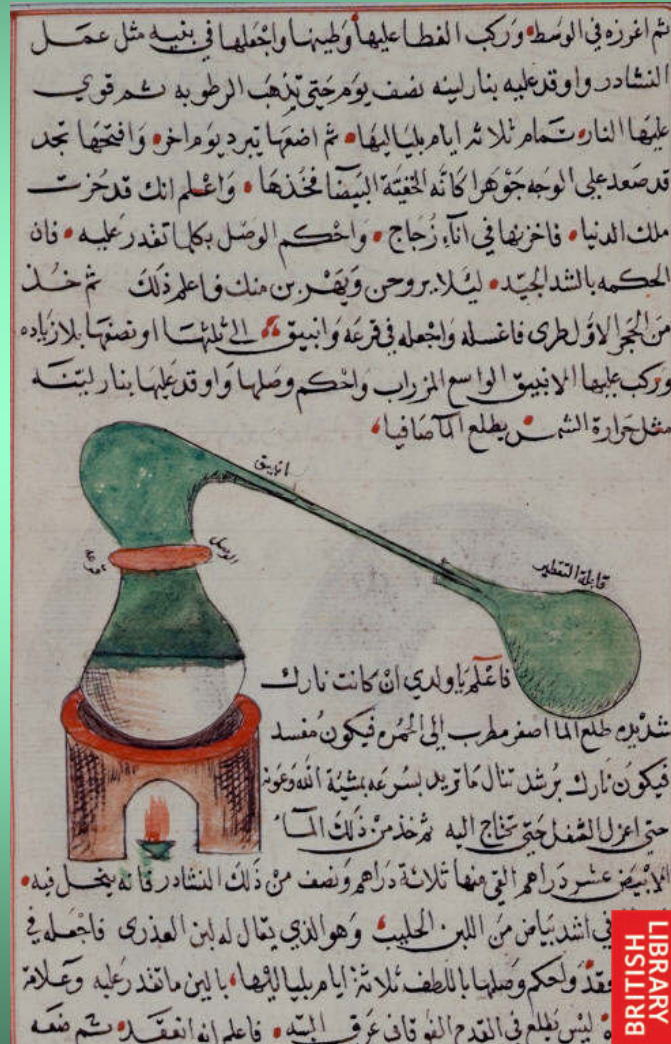 ثم اغوزه في الوسط وركب الغطا عليها وطينها واجعلها في بنيه مثل عمل
النشادر واوقد عليه بنار لينه نصف يوم حتى تذهب الرطوبه ثم قوي
عليها النار تمام ثلاثه ايام بلياليها ثم اضعها تبرد يوم اخر وافتحها تجد
قد صعد على الوجه جوهرا كانه البيضا فخذها واعلم انك قد حزت
ملك الدنيا فاخزنها في اناء زجاج واحكم الوصل بكلما تقدر عليه فان
الحكمه بالشد الجيد ليلا يروحن ويفرين منك فاعلم ذلك ثم خذ
من الحجر الاول طرى فاغسله واجعله في قرعه وانبيق الى ثلثها او نصفها بلا زياده
وركب عليها الانبيق الواسع المزراب واحكم وصلها واوقد عليها بنار لينه
مثل حرارة الشمس يطلع الما صافيا
انبيق
الوصل
قرعه
قابلة التقطير
فاعلم يا ولدي ان كانت نارك
شديده طلع الما اصفر مطرب الى الحمره فيكون مفسد
فيكون نارك برشد تنال ما تريد بسرعه بمشية الله وعونه
حتى اعزل الثفل حتى تحتاج اليه ثم خذ من ذلك الماء
الابيض عشر دراهم القى منها ثلاثة دراهم ونصف من ذلك النشادر فانه ينحل فيه
في اشد بياض من اللبن الحليب وهو الذي يقال له لبن العذرى فاجعله في
واحكم وصلها باللطف ثلاثة ايام بلياليها بالين ما تقدر عليه وعلامة
ليس يطلع في القدح الفوقاني عرق البته فاعلم انه انعقد ثم ضعه
BRITISH
LIBRARY